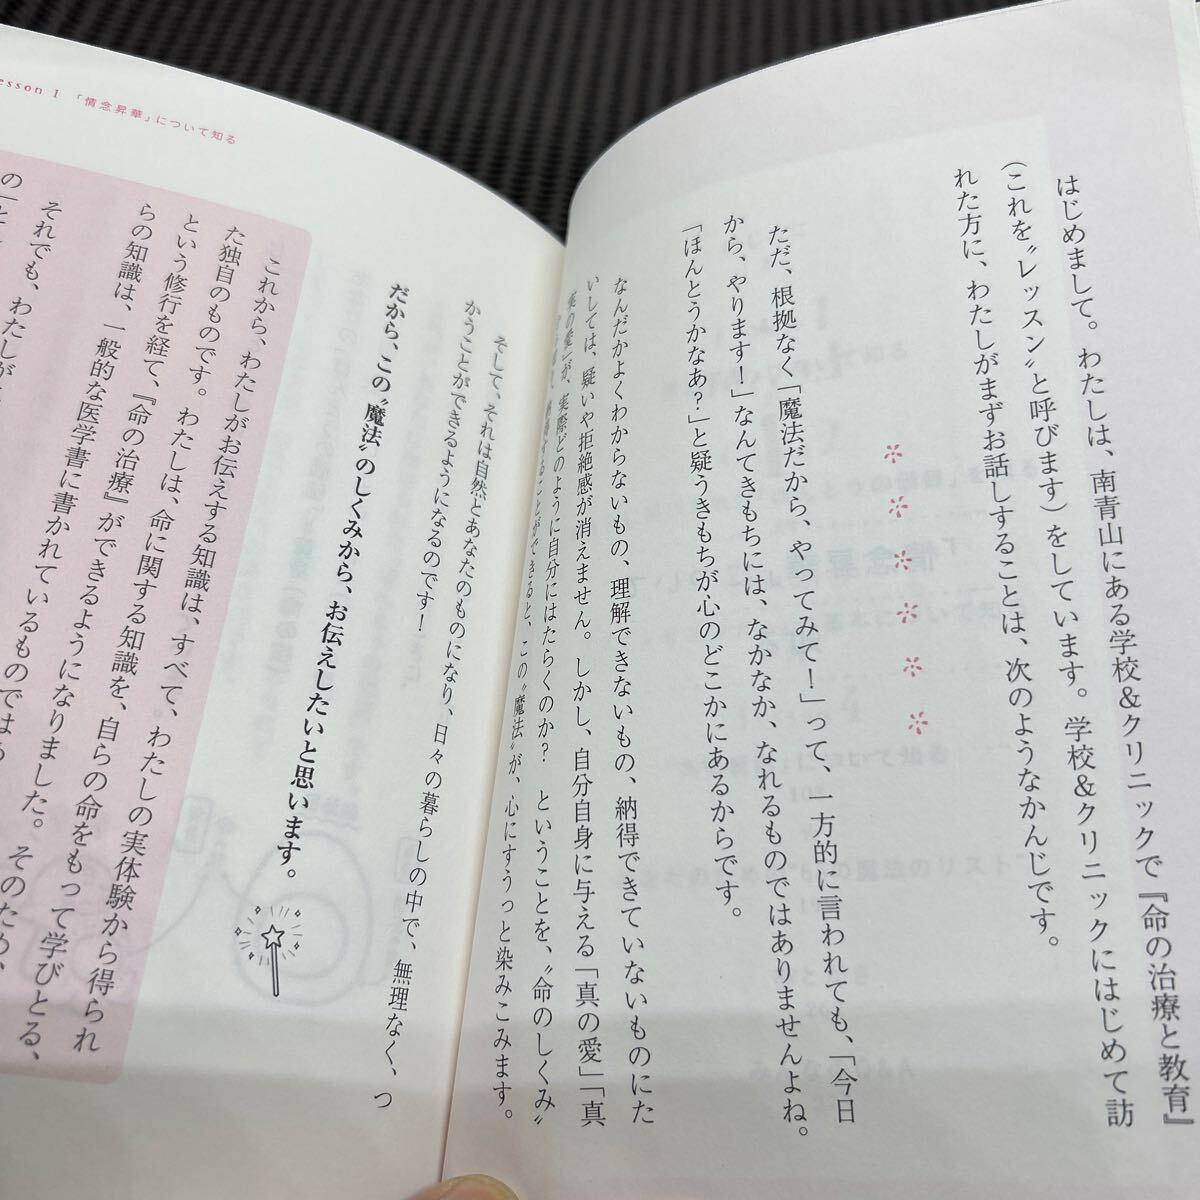 はじめまして。わたしは、南青山にある学校&クリニックで『命の治療と教育』
(これを〝レッスン〟と呼びます)をしています。学校&クリニックにはじめて訪
れた方に、わたしがまずお話しすることは、次のようなかんじです。
ただ、根拠なく「魔法だから、やってみて!」って、一方的に言われても、「今日
から、やります!」なんてきもちには、なかなか、なれるものではありませんよね。
「ほんとうかなあ?」と疑うきもちが心のどこかにあるからです。
なんだかよくわからないもの、理解できないもの、納得できていないものにた
いしては、疑いや拒絶感が消えません。しかし、自分自身に与える「真の愛」「真
実の愛」が、実際どのように自分にはたらくのか? ということを、〝命のしくみ〟
することができると、この〝魔法〟が、心にすうっと染みこみます。
esson 1 「情念昇華」について知る
そして、それは自然とあなたのものになり、日々の暮らしの中で、無理なく、つ
かうことができるようになるのです!
だから、この〝魔法〟のしくみから、お伝えしたいと思います。
これから、わたしがお伝えする知識は、すべて、わたしの実体験から得られ
た独自のものです。わたしは、命に関する知識を、自らの命をもって学びとる、
という修行を経て、『命の治療』ができるようになりました。そのため、
らの知識は、一般的な医学書に書かれているものではあ
それでも、わたしが
の「